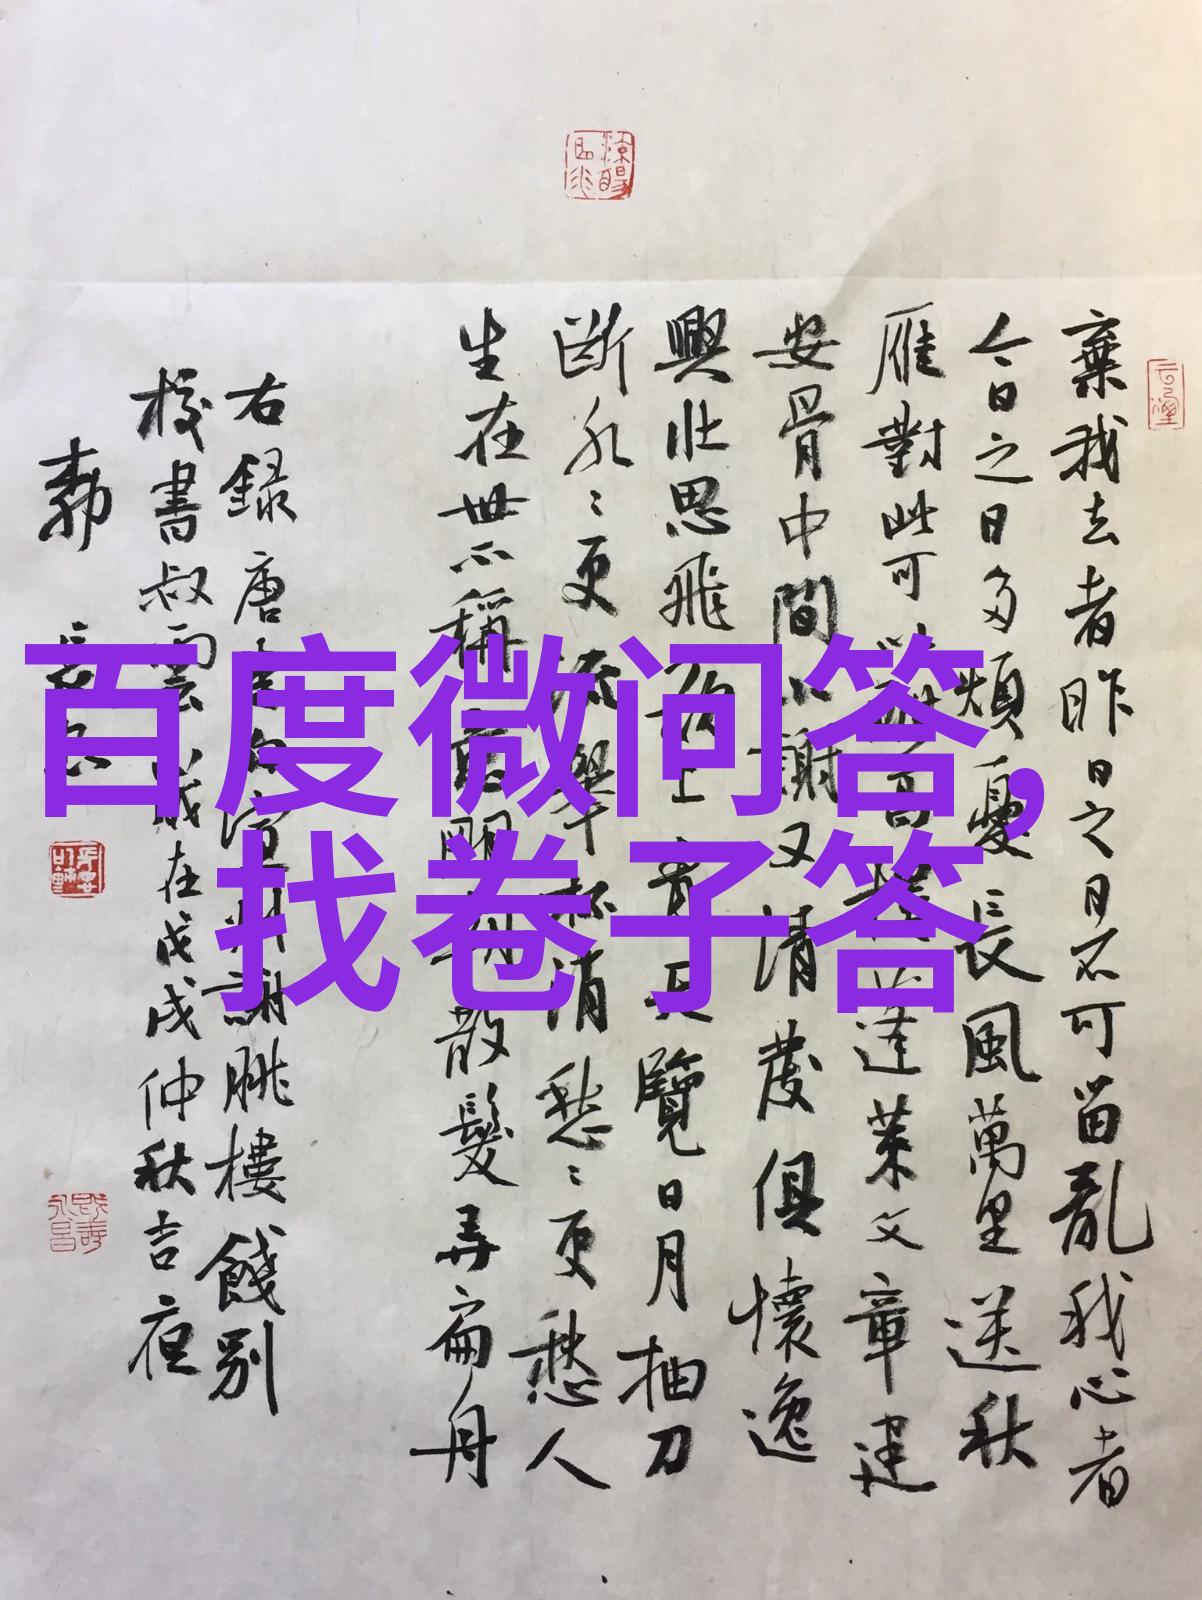 百度微问答,
找卷子答
棄我去者昨日之日不可留亂我心者
今日之日多煩憂長風萬里送秋
雁對此可以酣高樓蓬萊文章建
安骨中間小謝又清發俱懷逸
興壯思飛欲上青天覽日月抽刀
斷水〻更流舉杯消愁〻更愁人
生在世不稱意明朝散髮弄扁舟
右録唐李白宣州謝朓樓餞別
校書叔雲歲在戊戌仲秋吉夜